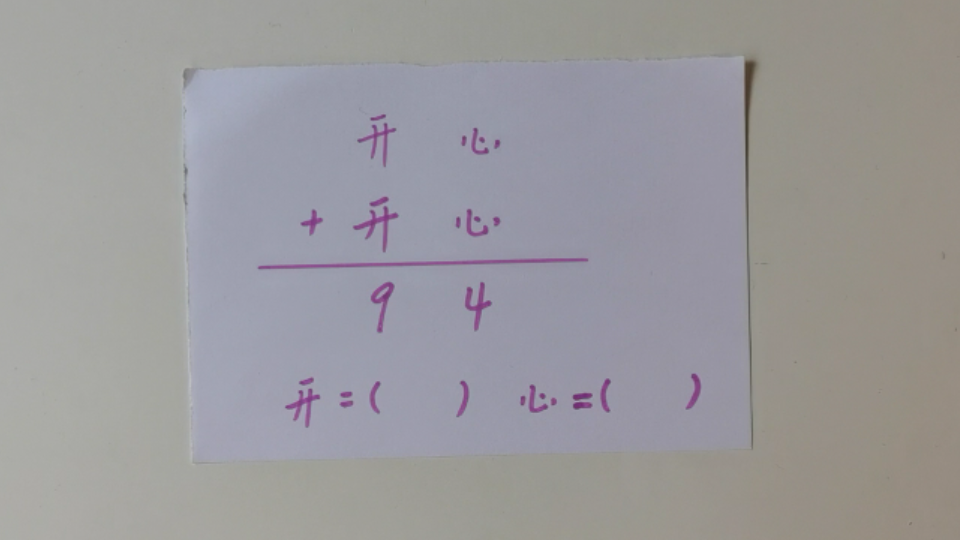 开 心
+ 开 心
9 4
开=( ) 心=( )